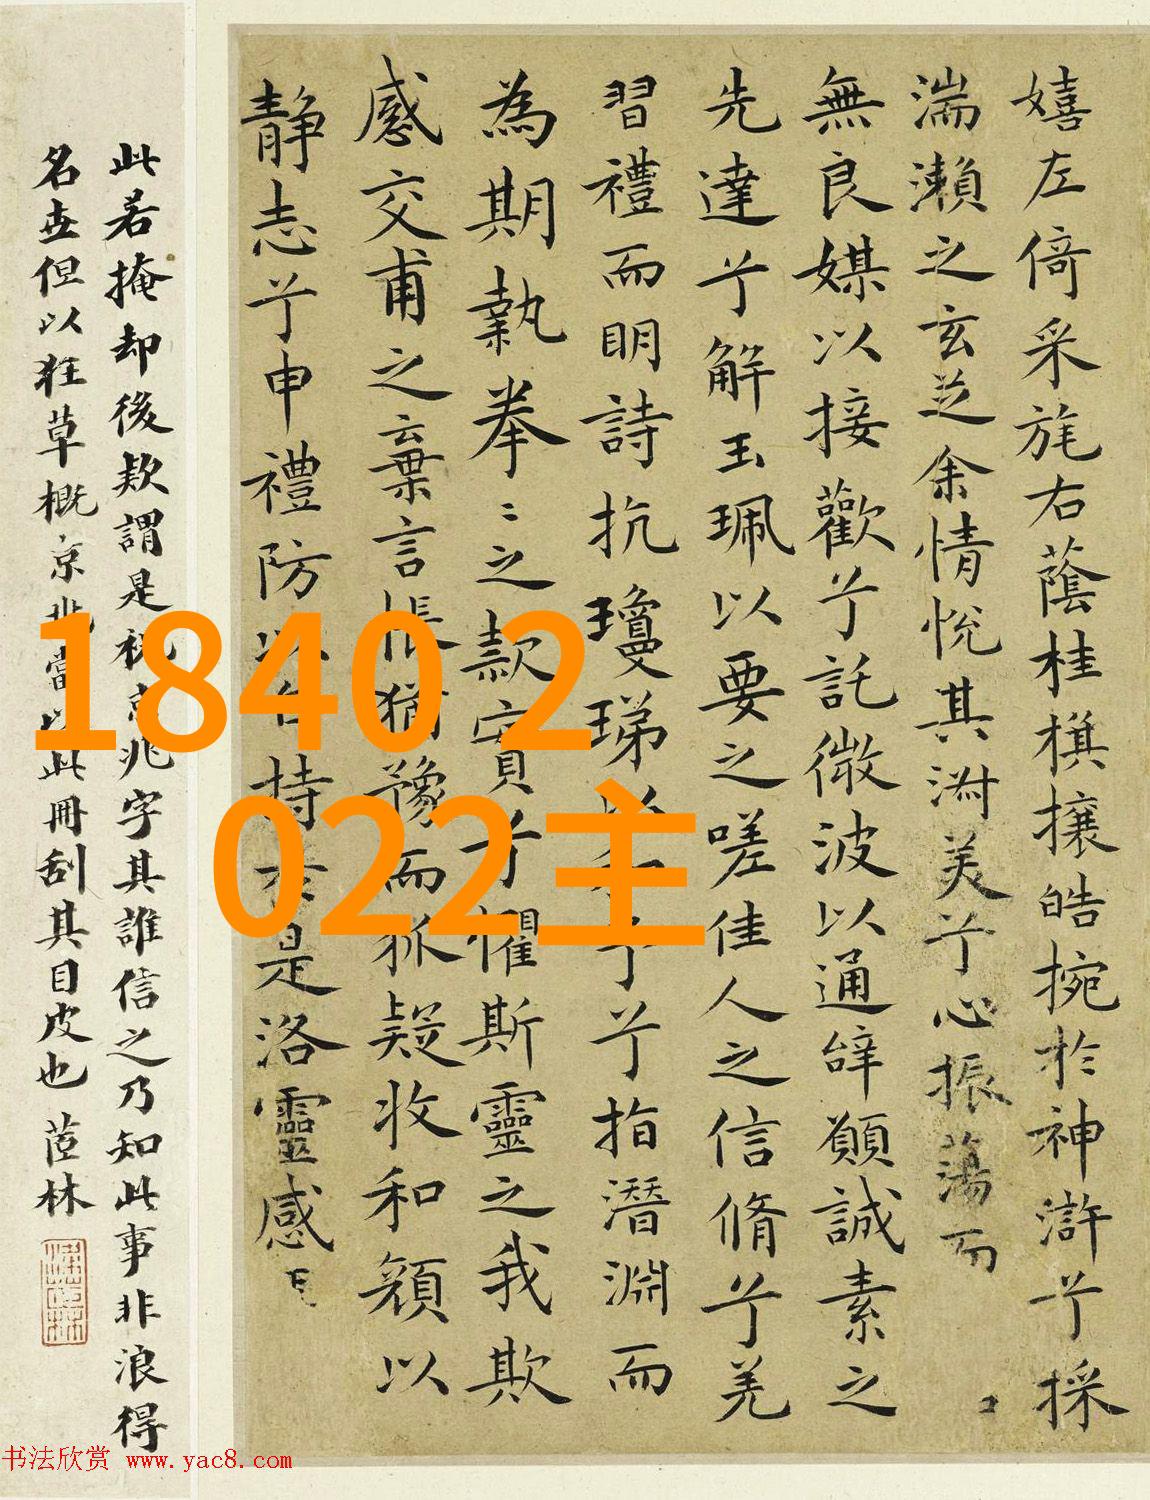 嬉左倚采旄右蔭桂櫵攘皓捥於神滸兮採
湍瀨之玄芝余情悅其淑美兮心振蕩而
無良媒以接歡兮託微波以通辭願誠素之
先達兮解玉珮以要之嗟佳人之信脩兮羌
習禮而明詩抗瓊珶以和予兮指潛淵而
為期執拳〻之款實兮懼斯靈之我欺
感交甫之棄言悵猶豫而狐疑收和顏以
靜志兮申禮防以自持於是洛靈感
此若掩却後欵謂是祝京兆字其誰信之乃知此事非浪得
名世但以狂草概京兆當以此冊刮其目皮也 茝林
18402
022主
书法欣赏 www.yac8.com